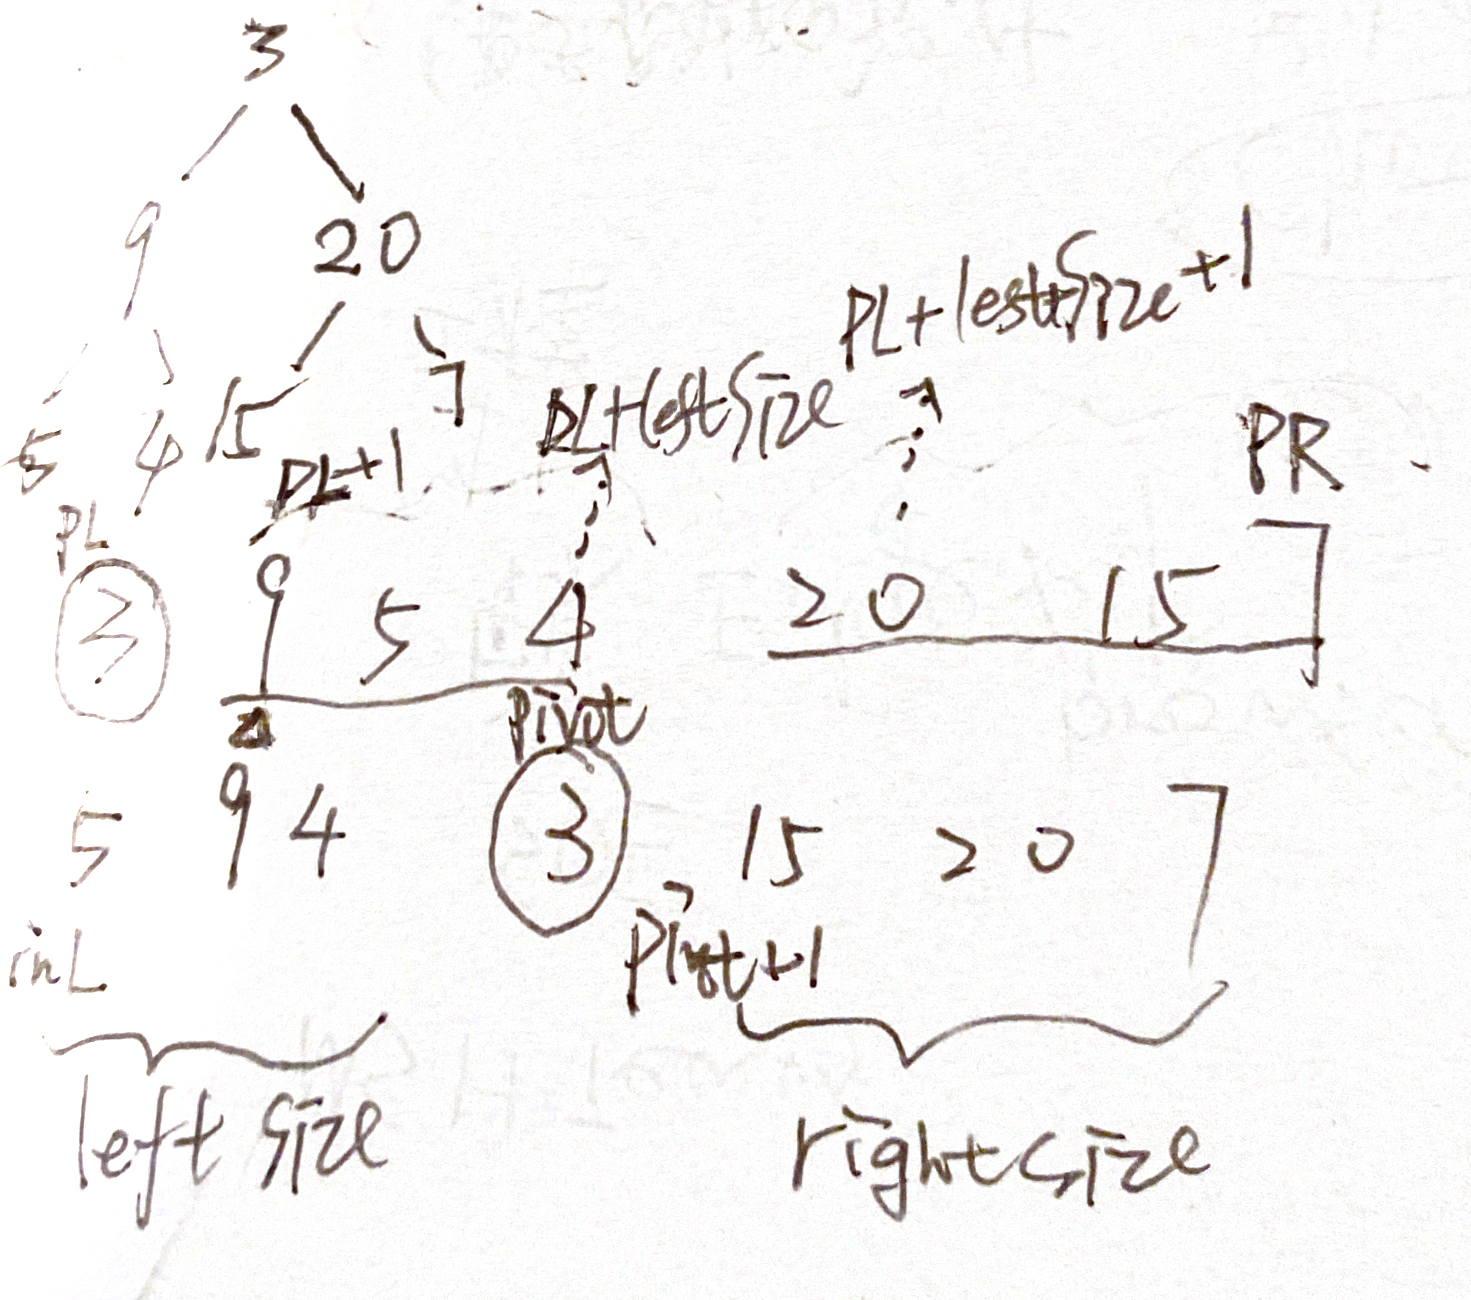 3
9 20
5 4 15 7
PL+1 PL+leftSize PL+leftSize+1 PR
PL
3 9 5 4 20 15 7
pivot
5 9 4 3 15 20 7
inL pivot+1
left size rightsize